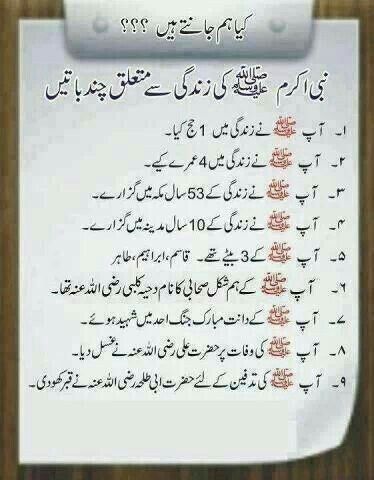 کیا ہم جانتے ہیں ؟؟؟
نبی اکرم ﷺ کی زندگی سے متعلق چند باتیں
۱۔ آپ ﷺ نے زندگی میں 1 حج کیا۔
۲۔ آپ ﷺ نے زندگی میں 4 عمرے کیے۔
۳۔ آپ ﷺ نے زندگی کے 53 سال مکہ میں گزارے۔
۴۔ آپ ﷺ نے زندگی کے 10 سال مدینہ میں گزارے۔
۵۔ آپ ﷺ کے 3 بیٹے تھے۔ قاسم، ابراہیم، طاہر
۶۔ آپ ﷺ کے ہم شکل صحابی کا نام دحیہ کلبی رضی اللہ عنہ تھا۔
۷۔ آپ ﷺ کے دانت مبارک جنگ احد میں شہید ہوئے۔
۸۔ آپ ﷺ کی وفات پر حضرت علی رضی اللہ عنہ نے غسل دیا۔
۹۔ آپ ﷺ کی تدفین کے لئے حضرت ابی طلحہ رضی اللہ عنہ نے قبر کھودی۔